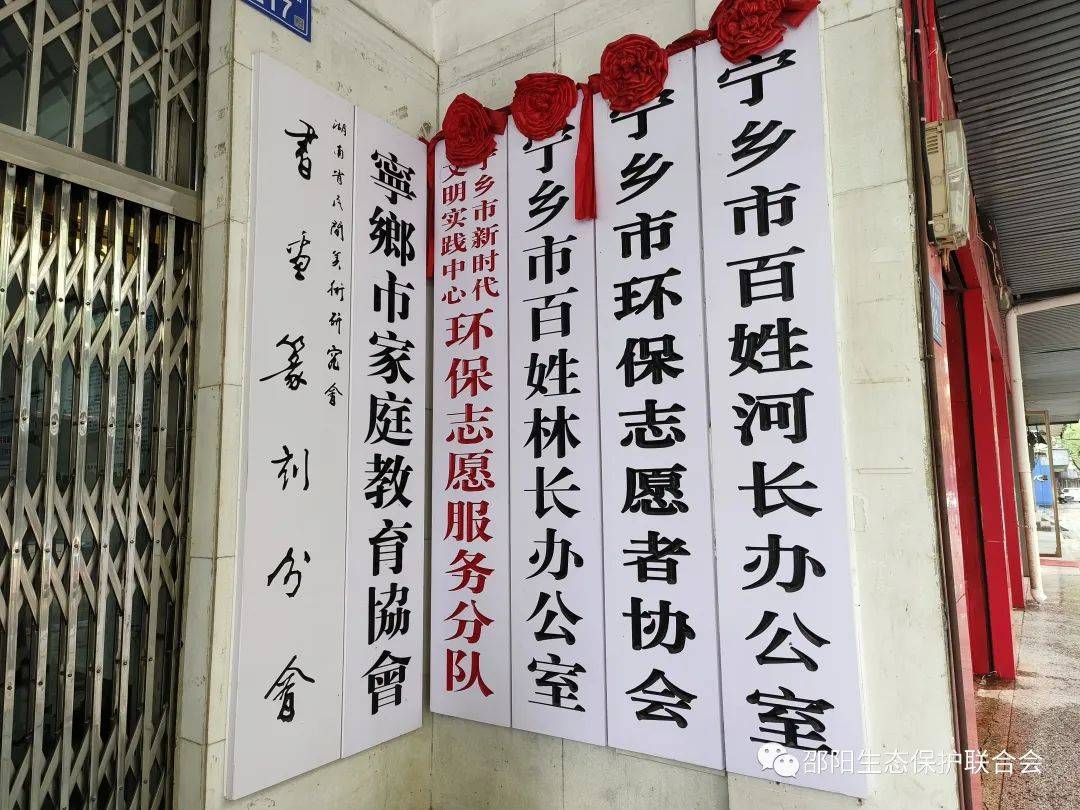 17
湖南省民間美術研究會
書畫篆刻分會
寧鄉市家庭教育協會
宁乡市新时代
文明实践中心
环保志愿服务分队
宁乡市百姓林长办公室
宁乡市环保志愿者协会
宁乡市百姓河长办公室
邵阳生态保护联合会